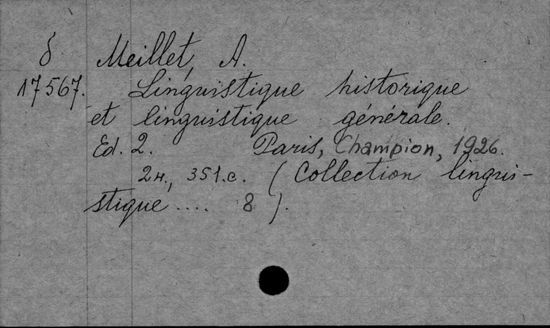 б Meillet, A.
17567. Linguistique historique
et linguistique générale.
Ed. 2. Paris, Champion, 1926.
2н., 351.с. (Collection linguis-
stique .... 8).